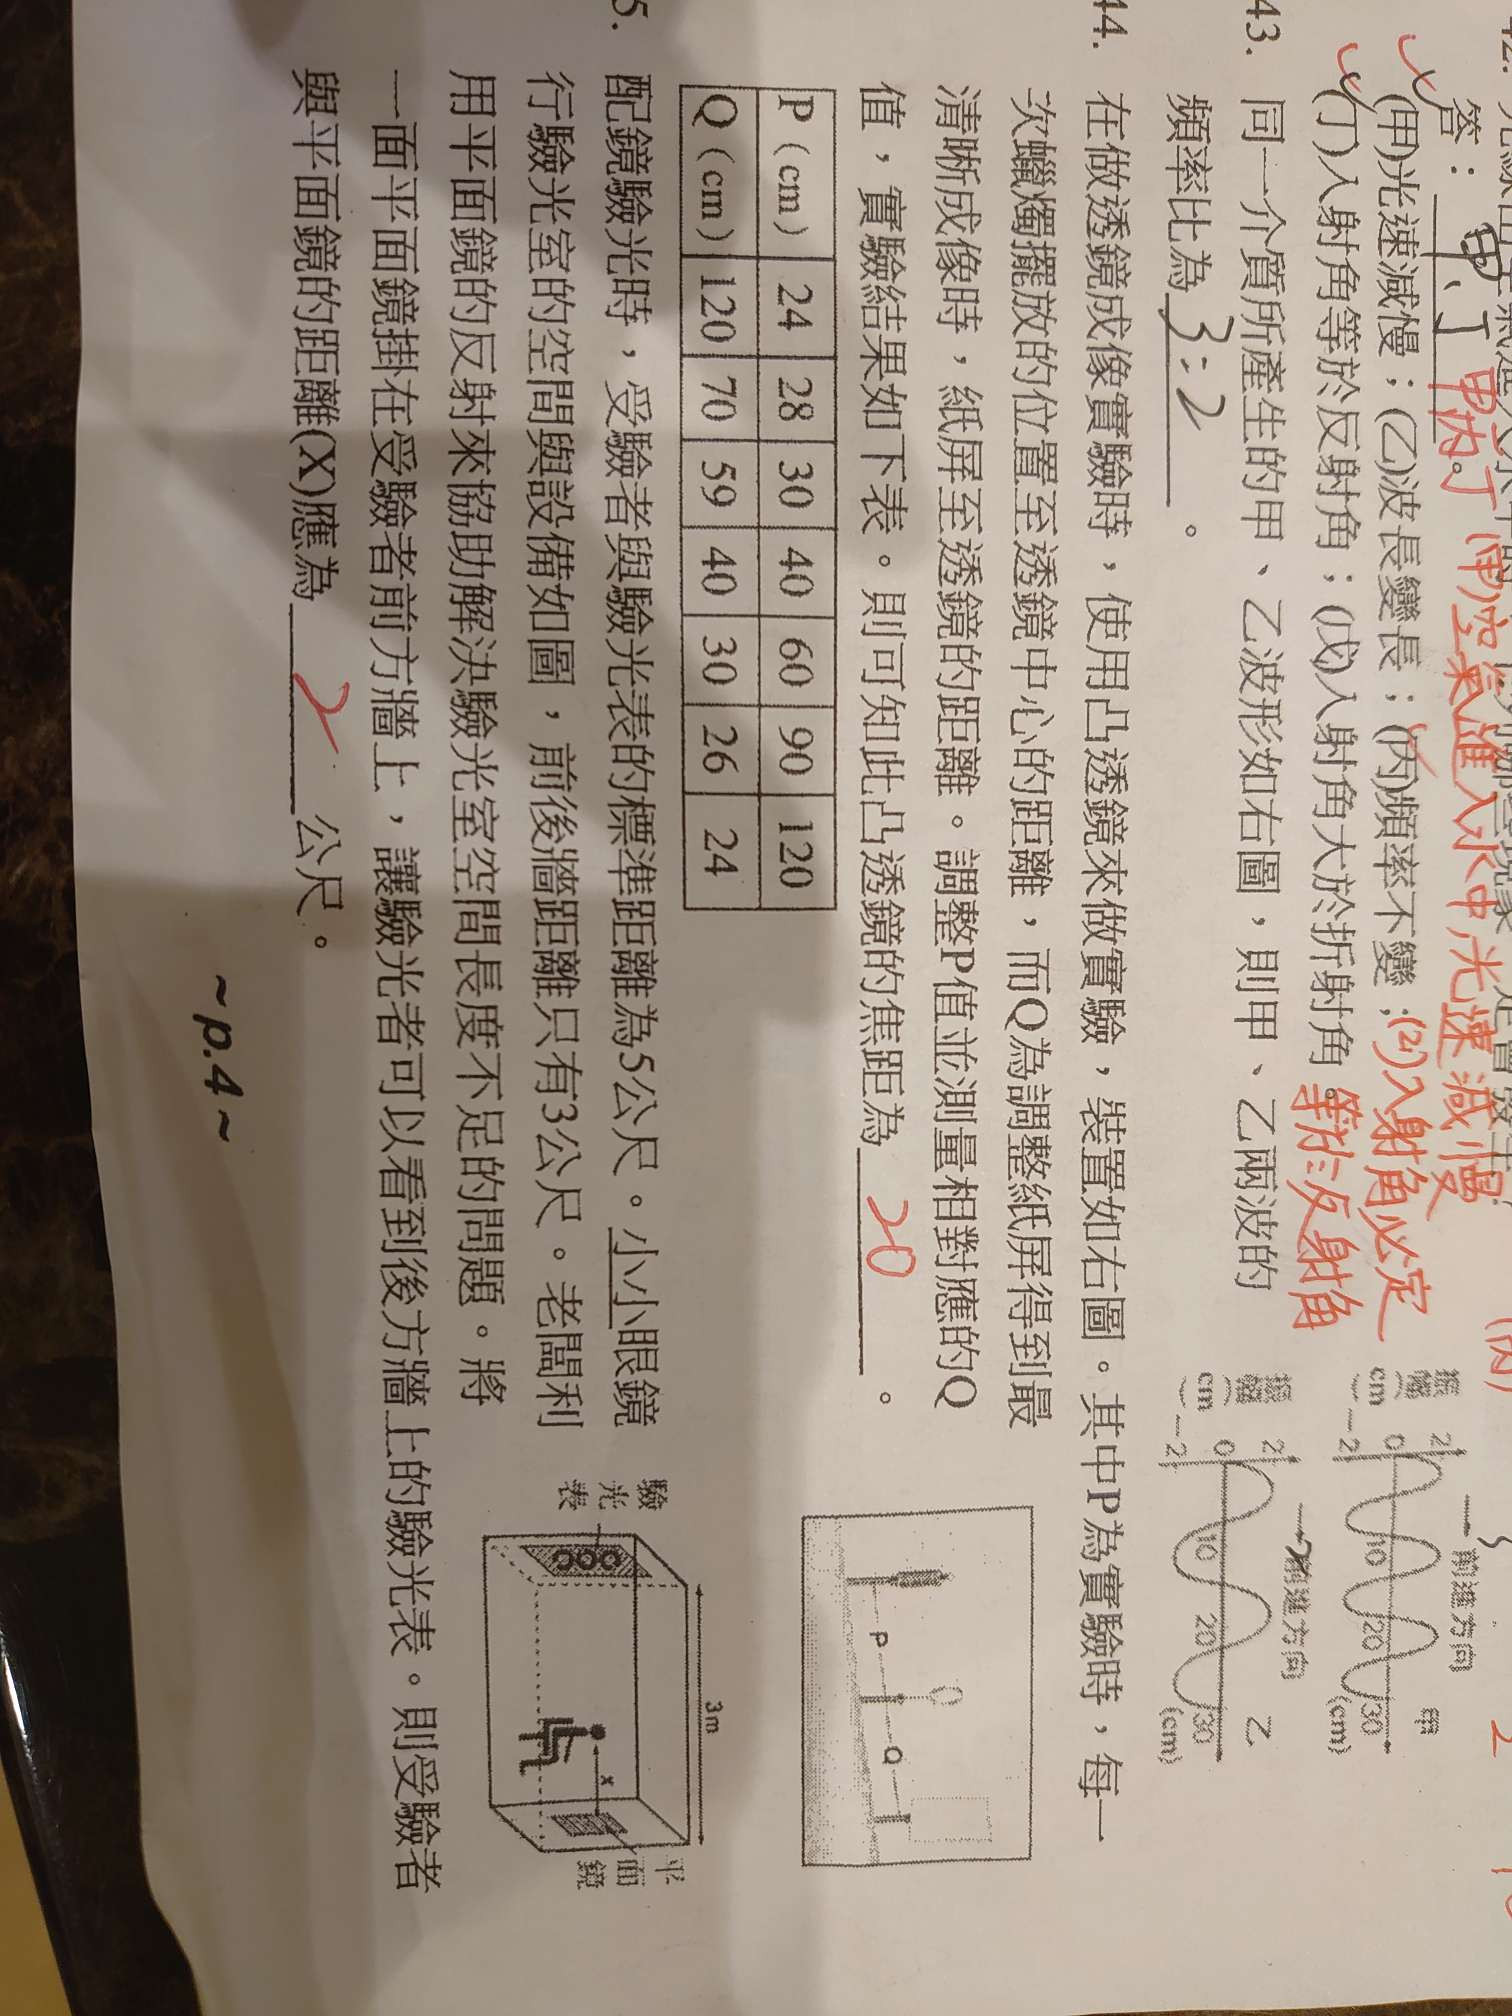 答：甲、丁 甲丙丁。(甲)空氣進入水中光速減慢
(甲)光速減慢；(乙)波長變長；(丙)頻率不變；(2)入射角必定
(丁)入射角等於反射角；(戊)入射角大於折射角。等於反射角
43. 同一介質所產生的甲、乙波形如右圖，則甲、乙兩波的
頻率比為 3:2 。
振幅 cm 2 0 -2 10 20 30 (cm) 前進方向 甲
振幅 cm 2 0 -2 10 20 30 (cm) 前進方向 乙
44. 在做透鏡成像實驗時，使用凸透鏡來做實驗，裝置如右圖。其中P為實驗時，每一
次蠟燭擺放的位置至透鏡中心的距離，而Q為調整紙屏得到最
清晰成像時，紙屏至透鏡的距離。調整P值並測量相對應的Q
值，實驗結果如下表。則可知此凸透鏡的焦距為 20 。
P（cm） 24 28 30 40 60 90 120
Q（cm） 120 70 59 40 30 26 24
P Q
5. 配鏡驗光時，受驗者與驗光表的標準距離為5公尺。小小眼鏡
行驗光室的空間與設備如圖，前後牆距離只有3公尺。老闆利
用平面鏡的反射來協助解決驗光室空間長度不足的問題。將
一面平面鏡掛在受驗者前方牆上，讓驗光者可以看到後方牆上的驗光表。則受驗者
與平面鏡的距離(X)應為 2 公尺。
驗光表
3m
x
平面鏡
~p.4~